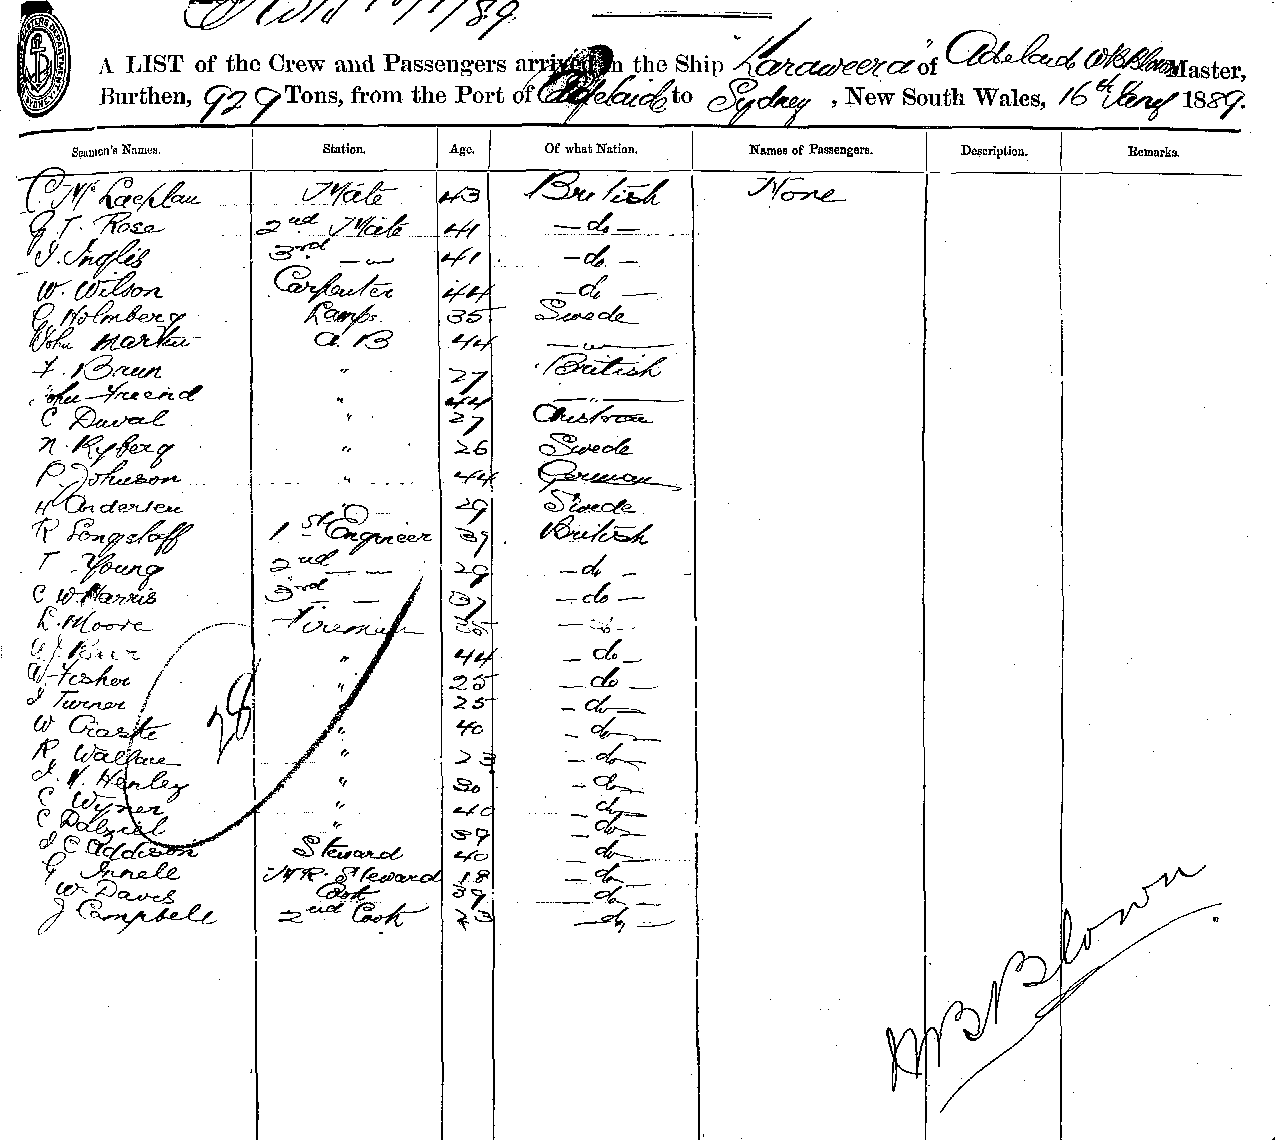 A LIST of the Crew and Passengers arrived in the Ship "Karaweera" of Adelaide W B Blown Master,
Burthen, 929 Tons, from the Port of Adelaide to Sydney, New South Wales, 16th Jany 1889.
Seamen's Names. Station. Age. Of what Nation. Names of Passengers. Description. Remarks.
C Mc Lachlan Mate 43 British None
G T. Rose 2nd Mate 41 - do -
J. Inglis 3rd - " - 41 - do -
W. Wilson Carpenter 44 - do -
G Holmberg Lamps 35 Swede
John Martin A. B 44 - " -
F. Brun " 27 British
John Freend " 44 - " -
C Duval " 27
N. Ryberg " 26 Swede
P. Johnson " 44 German
H Andersen " 29 Swede
R Longstaff 1st Engineer 39 British
T Young 2nd - " - 29 - do -
C W Harris 3rd - " - 37 - do -
L. Moore Fireman - do -
" 44 - do -
W Fisher " 25 - do -
J Turner " 25 - do -
W " 40 - do -
R Wallace " 23 - do -
J. H. Henley " 30 - do -
C Wyner " 40 - do -
C Dalziel " 39 - do -
J C Addison Steward 40 - do -
G Innell Steward 18 - do -
W. Davis Cook 39 - do -
J Campbell 2nd Cook 23 - do -
28
W B Blown